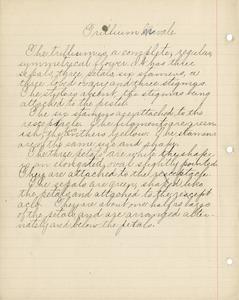 Trillium Nivale
The trillium is a complete, regular,
symmetrical flower. It has three
sepals, three petals six stamens, a
three lobed ovary and three stigmas.
The style is absent, the stigmas being
attached to the pistil.
The six stamens are attached to the
receptacle. The filaments are green
ish, the anthers yellow. The stamens
are of the same size and shape.
The three petals are white. They shape
is an elongated, oval slightly pointed.
They are attached to the receptacle.
The sepals are green, shaped like
the petals and attached to the recept
acle. They are about one half as large
as the petals and are arranged alter-
nately and below the petals.